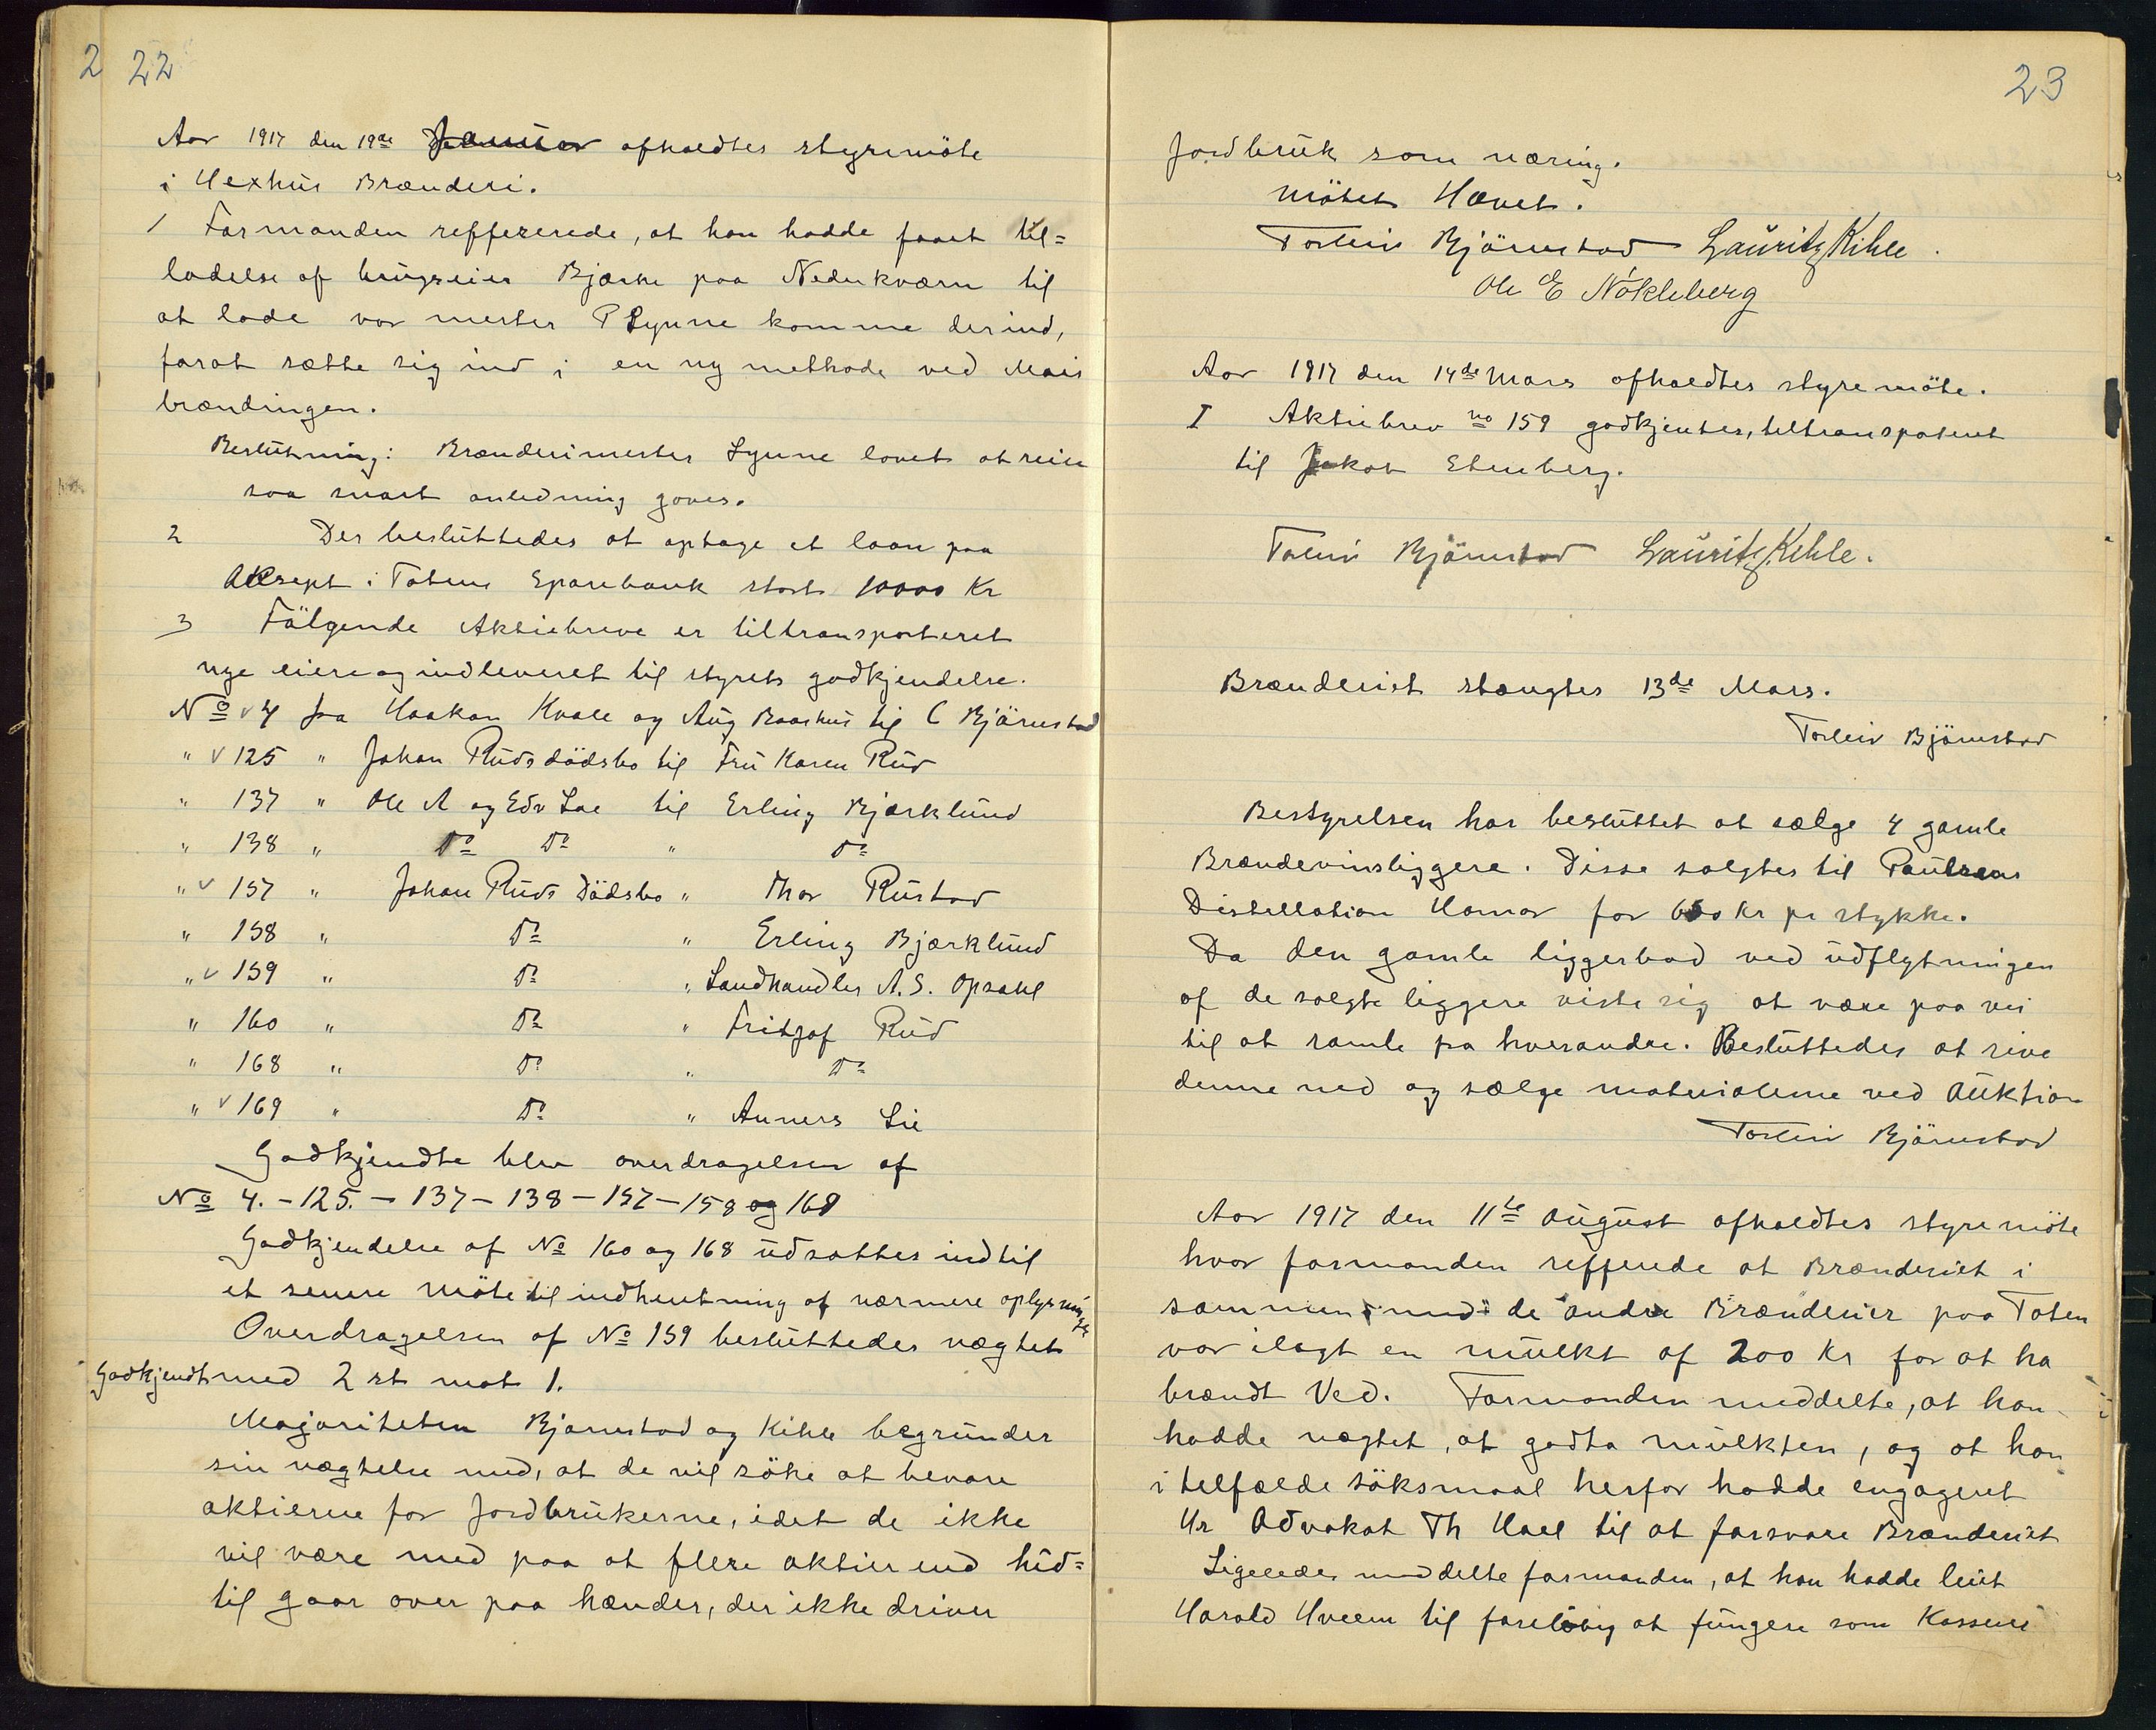 2 22
Aar 1917 den 19de Januar afholdtes styremöte
i Hexhus Brænderi.
1 Formanden reffererede, at han hadde faaet til=
ladelse af brugseier Bjærke paa Nederkværn til
at lade vor mester P Lynne komme derind,
forat sætte sig ind i en ny methode ved Mais
brændingen.
Beslutning: Brænderimester Lynne lovet at reise
saa snart anledning gaves.
2 Der besluttedes at optage et laan paa
Aksept i Totens Sparebank stort 10000 Kr
3 Fölgende Aktiebreve er tiltransporteret
nye eiere og indleveret til styrets godkjendelse.
No v 4 fra Haakon Hvale og Aug Baashus til C Björnstad
" v 125 " Johan Ruds dödsbo til Fru Karen Rud
" 137 " Ole A og Edv Lae til Erling Bjærklund
" 138 " Do Do " Do
" v 157 " Johan Ruds Dödsbo " Thor Rustad
" 158 " Do " Erling Bjærklund
" v 159 " Do " Landhandler A. S. Opsahl
" 160 " Do " Fritjof Rud
" 168 " Do " Do
" v 169 " Do " Anners Lie
Godkjendte blev overdragelsen af
No 4. - 125. - 137 - 138 - 157 - 158 og 169
Godkjendelse af No 160 og 168 udsattes indtil
et senere möte til indhentning af nærmere oplysninger
Overdragelsen af No 159 besluttedes nægtet
Godkjendt med 2 st mot 1.
Majoriteten Bjørnstad og Kihle begrunder
sin nægtelse med, at de vil söke at bevare
aktierne for Jordbrukerne, idet de ikke
vil være med paa at flere aktier end hid=
til gaar over paa hænder, der ikke driver
23
Jordbruk som næring.
Mötet Hævet.
Torleiv Björnstad Lauritz Kihle.
Ole E Nökleberg
Aar 1917 den 14de Mars afholdtes styremöte.
I Aktiebrev no 159 godkjentes, tiltransporteret
til Jakob Stenberg.
Torleiv Björnstad Lauritz Kihle.
Brænderiet stængtes 13de Mars.
Torleiv Björnstad
Bestyrelsen har besluttet at sælge 4 gamle
Brændevinsliggere. Disse solgtes til Paulsens
Distillation Hamar for 650 Kr pr stykke.
Da den gamle liggerbod ved udflytningen
af de solgte liggere viste sig at være paa vei
til at ramle fra hverandre. Besluttedes at rive
denne ned og sælge materialerne ved Auktion
Torleiv Björnstad
Aar 1917 den 11te August afholdtes styremöte
hvor formanden refferede at Brænderiet i
sammen med de andre Brænderier paa Toten
var ilagt en mulkt af 200 Kr for at ha
brændt Ved. Formanden meddelte, at han
hadde nægtet, at godta mulkten, og at han
i tilfælde söksmaal herfor hadde engageret
Hr Advokat Th Hael til at forsvare Brænderiet
Ligeledes meddelte formanden, at han hadde leiet
Harald Hveem til forelöbig at fungere som Kasserer